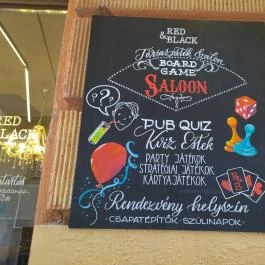 RED
& BLACK
Társasjáték Szalon
BOARD
GAME
SALOON
PUB QUIZ
Kvíz Esték
PARTY JÁTÉKOK
STRATÉGIAI JÁTÉKOK
KÁRTYAJÁTÉKOK
Rendezvény helyszín
CSAPATÉPÍTŐK · SZÜLINAPOK
RED
& BLACK